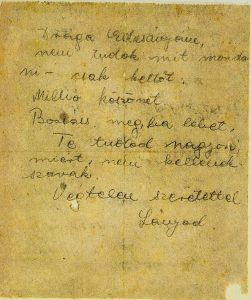 Drága Édesanyám,
nem tudok mit monda
ni – csak kettőt.
Millió köszönet.
Bocsáss meg, ha lehet.
Te tudod nagyon,
miért, nem kellenek
szavak.
Végtelen szeretettel
Lányod